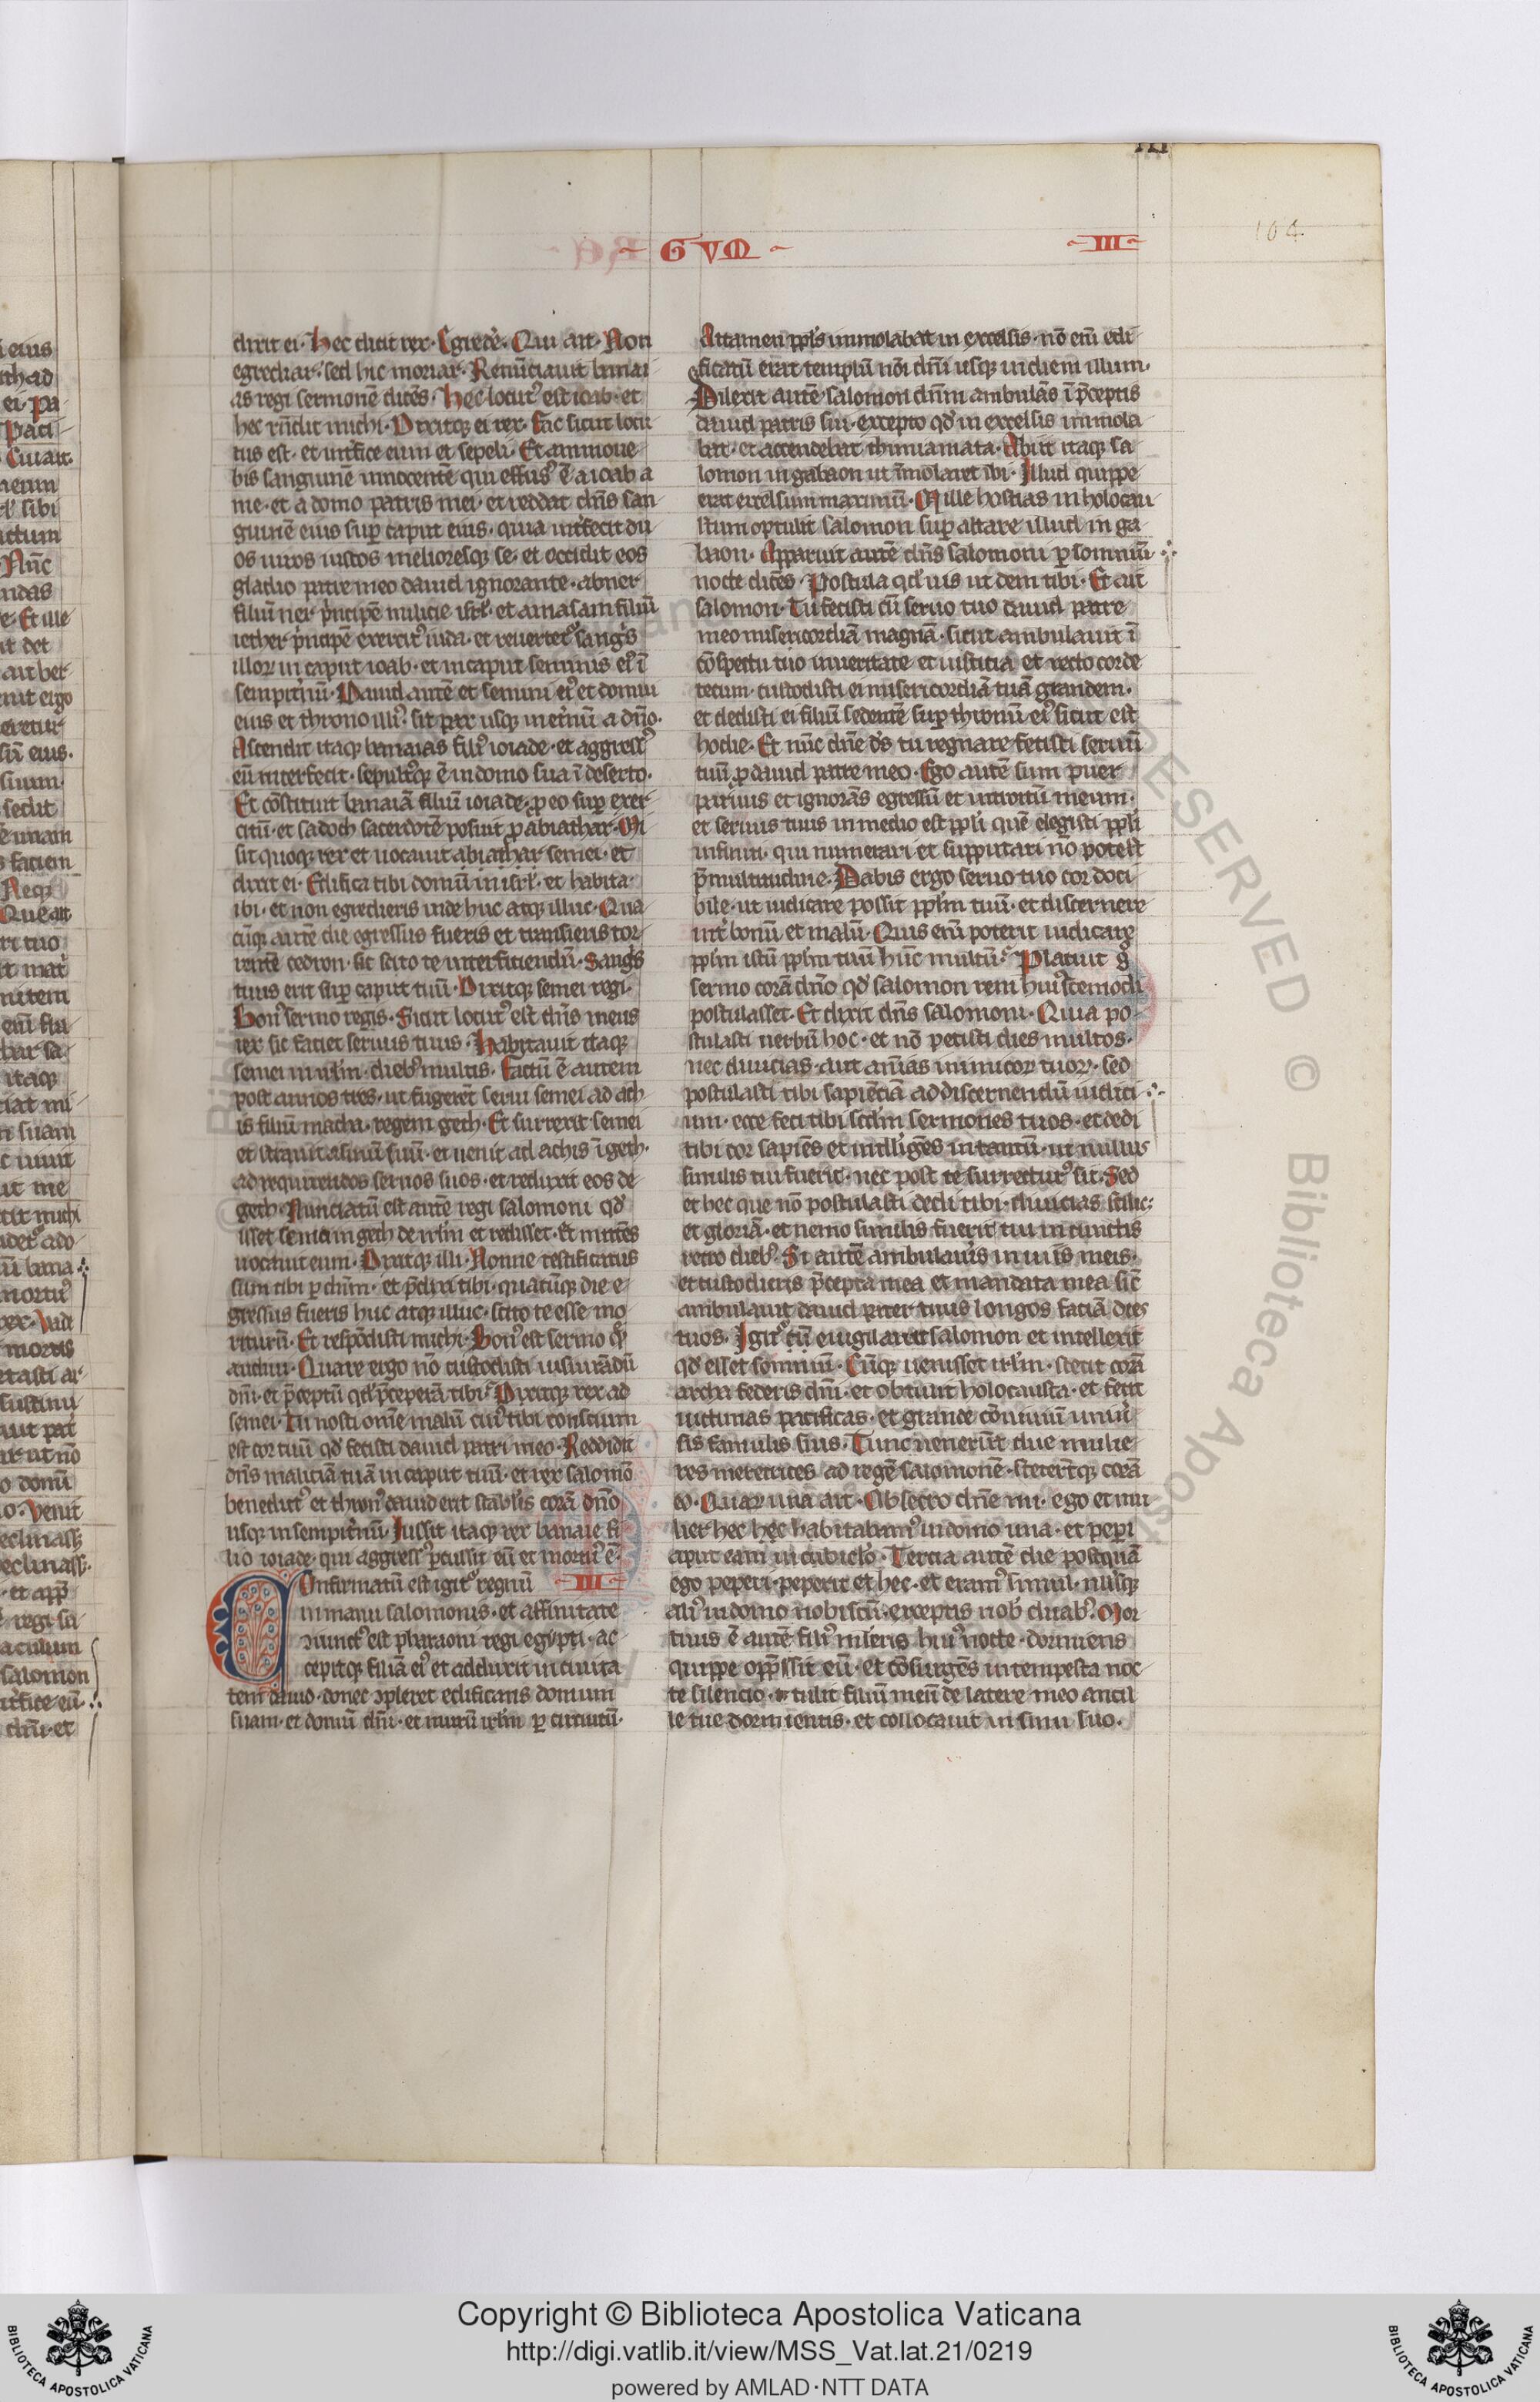 G V M
III
104
dixit ei · Hec dicit rex · Egredere · Qui ait · Non
egrediar · sed hic moriar · Renūciavit banai
as regi sermonē dicēs · Hec locut᾽ est ioab · et
hec rn̄dit michi · Dixitq; ei rex · Fac sicut locu
tus est · et int̄fice eum et sepeli · Et ammove
bis sanguinē innocentē qui effus᾽ ē a ioab a
me · et a domo patris mei · et reddat dn̄s san
guinē eius sup caput eius · quia int̄fecit du
os viros iustos melioresq; se · et occidit eos
gladio patre meo david ignorante · abner
filiū ner p̄ncipē milicie isrl᾽ · et amasam filiū
iether p̄ncipē exercit᾽ iuda · et revertet᾽ sang᾽s
illor in caput ioab · et in caput seminis ei᾽ ī
sempit̄nū · David autē et semini ei᾽ et domui
eius et throno illi᾽ sit pax usq; in et̄nū a dn̄o ·
Ascendit itaq; banaias fili᾽ ioiade · et aggress᾽
eū interfecit · sepult᾽q; ē in domo sua ī deserto ·
Et cōstituit banaiā filiū ioiade · p eo sup exer
citū · et sadoch sacerdotē posuit p abiathar · Mi
sit quoq; rex et vocavit abiathar semei · et
dixit ei · Edifica tibi domū in isrl᾽ · et habita
ibi · et non egredieris inde huc atq; illuc · Qua
cūq; autē die egressus fueris et transieris tor
rentē cedron · sic scito te interficiendū · Sang᾽s
tuus erit sup caput tuū · Dixitq; semei regi ·
Bon᾽ sermo regis · Sicut locut᾽ est dn̄s meus
rex sic faciet servus tuus · Habitavit itaq;
semei in irl̄m · dieb᾽ multis · Factū ē autem
post annos tres · ut fugerēt servi semei ad ach
is filiū macha · regem geth · Et surrexit semei
et stravit asinū suū · et venit ad achis ī geth ·
ad requirendos servos suos · et reduxit eos de
geth · Nunciatū est autē regi salomoni qd᾽
isset semei in geth de irl̄m et redisset · Et mittēs
vocavit eum · Dixitq; illi · Nonne testificatus
sum tibi p dn̄m · et p̄dixi tibi · quacūq; die e
gressus fueris huc atq; illuc · scito te esse mo
riturū · Et respōdisti michi · Bon᾽ est sermo quē
audivi · Quare ergo nō custodisti iusiurādū
dn̄i · et p̄ceptū qd᾽ p̄ceperā tibi · Dixitq; rex ad
semei · Tu nosti omē malū cui᾽ tibi conscium
est cor tuū qd᾽ fecisti david patri meo · Reddidit
dn̄s maliciā tuā in caput tuū · et rex salomō
benedict᾽ et thron᾽ david erit stabilis corā dn̄o
usq; in sempit̄nū · Iussit itaq; rex banaie fi
lio ioiade · qui aggress᾽ pcussit eū et mortu᾽ ē ·
Confirmatū est igit᾽ regnū III
in manu salomonis · et affinitate
ɔiunct᾽ est pharaoni regi egipti · ac
cepitq; filiā ei᾽ et adduxit in civita
tem david · donec ɔpleret edificans domum
suam · et domū dn̄i · et murū irl̄m p circuitū ·
Attamen ppl̄s immolabat in excelsis · nō enī edi
ficatū erat templū nōi dn̄i usq; in diem illum ·
Dilexit autē salomon dn̄m ambulās ī p̄ceptis
david patris sui · excepto qd᾽ in excelsis immola
bat · et accendebat thimiamata · Abiit itaq; sa
lomon in gabaon ut īmolaret ibi · Illud quippe
erat excelsum maximū · Mille hostias in holocau
stum optulit salomon sup altare illud in ga
baon · Apparuit autē dn̄s salomoni p somniū
nocte dicēs · Postula qd᾽ vis ut dem tibi · Et ait
salomon · Tu fecisti cū servo tuo david patre
meo misericordiā magnā · sicut ambulavit ī
cōspectu tuo in veritate et iusticia et recto corde
tecum · custodisti ei misericordiā tuā grandem ·
et dedisti ei filiū sedentē sup thronū ei᾽ sicut est
hodie · Et nūc dn̄e ds̄ tu regnare fecisti servū
tuū p david patre meo · Ego autē sum puer
parvus et ignorās egressū et introitū meum ·
et servus tuus in medio est ppl̄i quē elegisti ppl̄i
infiniti · qui numerari et supputari nō potest
p̄ multitudine · Dabis ergo servo tuo cor doci
bile · ut iudicare possit ppl̄m tuū · et discernere
int̄ bonū et malū · Quis enī poterit iudicare
ppl̄m istū ppl̄m tuū hūc multū · Placuit g°
sermo corā dn̄o qd᾽ salomon rem hui᾽scemodi
postulasset · Et dixit dn̄s salomoni · Quia po
stulasti verbū hoc · et nō petisti dies multos ·
nec divicias · aut aīas inimicor tuor · sed
postulasti tibi sapiēciā ad discernendū iudici
um · ecce feci tibi scd̄m sermones tuos · et dedi
tibi cor sapiēs et intelligēs in tantū · ut nullus
similis tui fuerit · nec post te surrectur᾽ sit · Sed
et hec que nō postulasti dedi tibi · divicias scilic;
et gloriā · et nemo similis fuerit tui in cunctis
retro dieb᾽ · Si autē ambulav᾽is in viis meis ·
et custodieris p̄cepta mea et mandata mea sic̄
ambulavit david pater tuus longos faciā dies
tuos · Igit᾽ cū evigilavit salomon et intellexit
qd᾽ esset somniū · Cūq; venisset irl̄m · stetit corā
archa federis dn̄i · et obtulit holocausta · et fecit
victimas pacificas · et grande cōviviū univ᾽
sis famulis suis · Tunc venerūt due mulie
res meretrices ad regē salomonē · steterūtq; corā
eo · Quar una ait · Obsecro dn̄e mi · ego et mu
lier hec hec habitabam᾽ in domo una · et pepi
aput eam in cubiclo · Tercia autē die postquā
ego peperi · peperit et hec · et eram᾽ simul · nullusq;
ali᾽ in domo nobiscū · exceptis nob᾽ duab᾽ · Mor
tuus ē autē fili᾽ mul̄eris hui᾽ nocte · dormiens
quippe opp̄ssit eū · et cōsurgēs intempesta noc
te silencio · tulit filiū meū de latere meo ancil
le tue dormientis · et collocavit in sinu suo ·
Copyright © Biblioteca Apostolica Vaticana
http://digi.vatlib.it/view/MSS_Vat.lat.21/0219
powered by AMLAD·NTT DATA
BIBLIOTECA APOSTOLICA VATICANA
BIBLIOTECA APOSTOLICA VATICANA